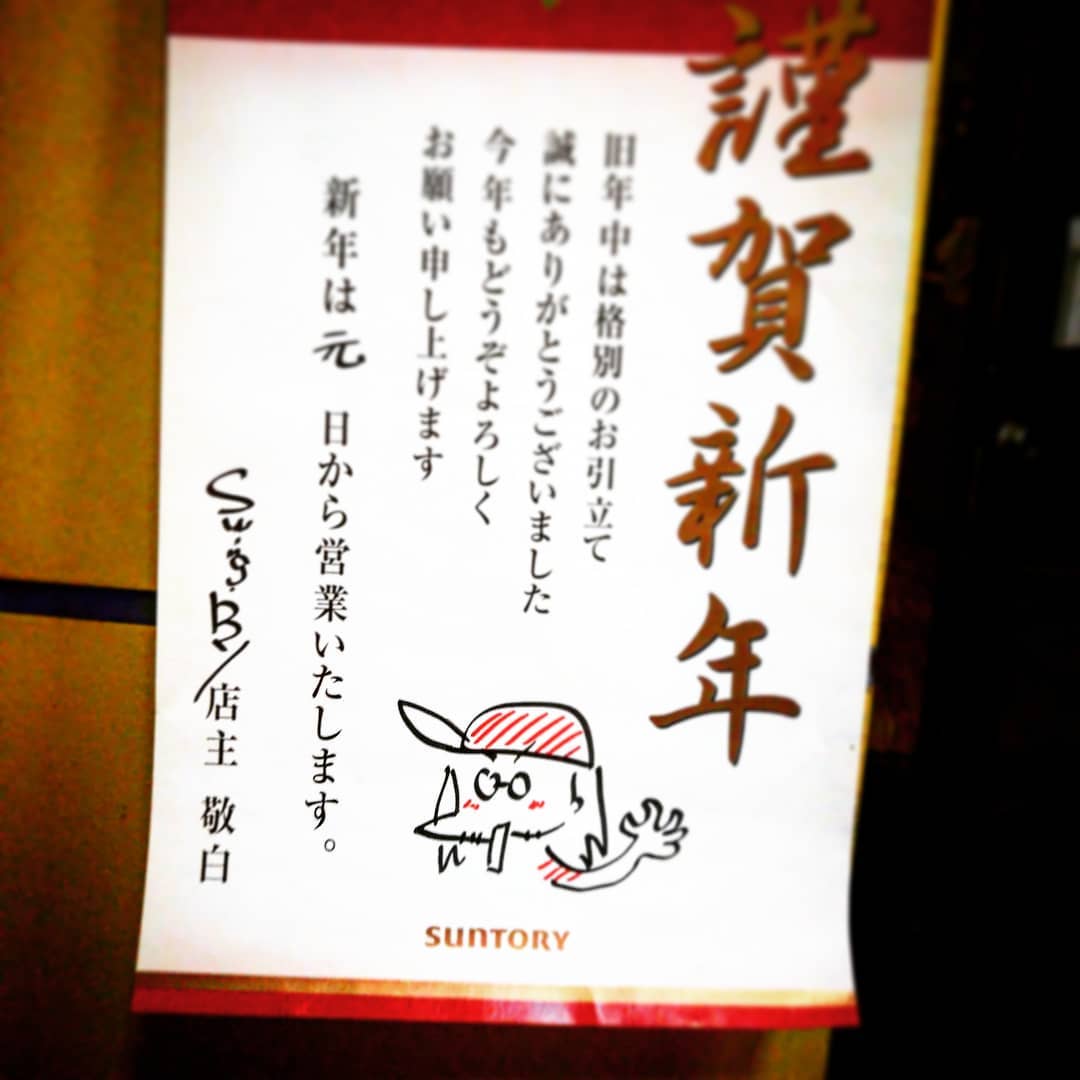 謹賀新年
旧年中は格別のお引立て
誠にありがとうございました
今年もどうぞよろしく
お願い申し上げます
新年は 元 日から営業いたします。
店主 敬白
SUNTORY